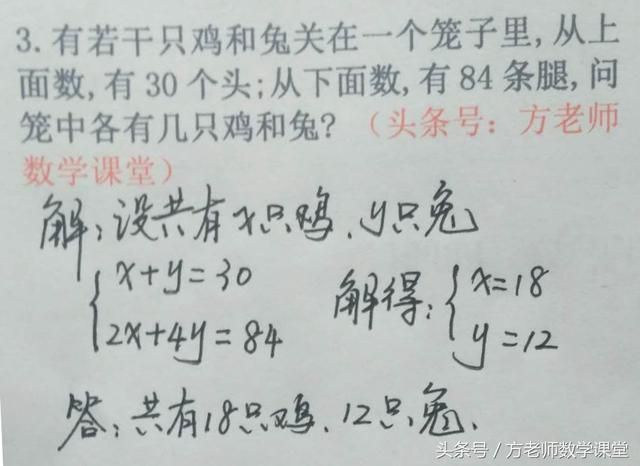 3.有若干只鸡和兔关在一个笼子里,从上
面数,有30个头;从下面数,有84条腿,问
笼中各有几只鸡和兔?（头条号：方老师
数学课堂）
解:设共有x只鸡、y只兔
x+y=30
2x+4y=84
解得:
x=18
y=12
答:共有18只鸡、12只兔.
头条号 / 方老师数学课堂